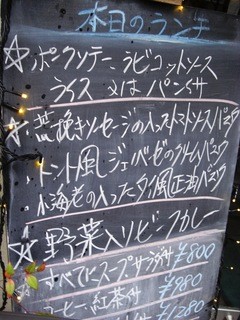 本日のランチ
☆ポークソテー ラビゴットソース
ライス 又は パン付
☆荒挽きソーセージの入ったトマトソースパスタ
風ジェノベーゼのクリームパスタ
小海老の入ったタイ風正油パスタ
☆野菜入りビーフカレー
☆すべてにスープサラダ付 ¥800
コーヒー・紅茶付 ¥980
付 ¥1,280